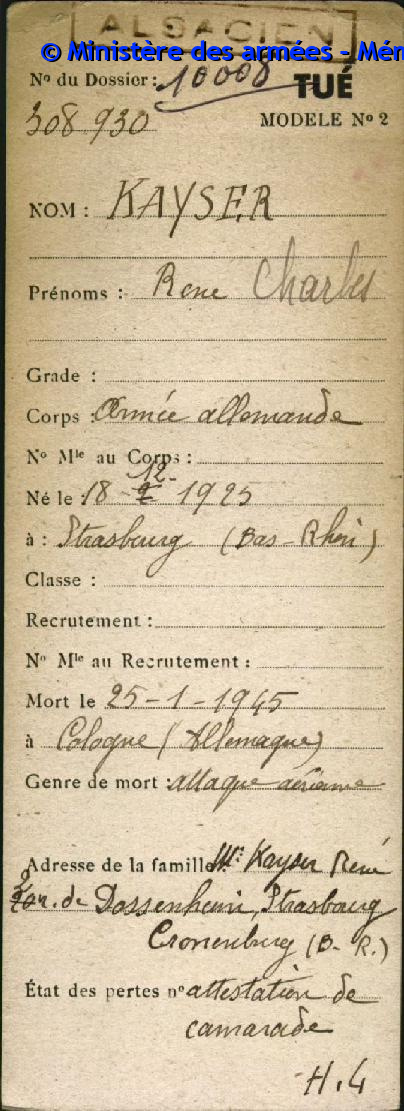 ALSACIEN
© Ministère des armées - Mém
Nº du Dossier : 10008
TUÉ
308 930
MODELE Nº 2
NOM : KAYSER
Prénoms : René Charles
Grade :
Corps : Armée allemande
Nº Mle au Corps :
12.
Né le : 18 - 2 - 1925
à : Strasbourg (Bas-Rhin)
Classe :
Recrutement :
Nº Mle au Recrutement :
Mort le 25-1-1945
à Cologne (Allemagne)
Genre de mort : attaque aérienne
Adresse de la famille : Mr Kayser René
r. de Dossenheim, Strasbourg
Cronenburg (B. R.)
État des pertes nº attestation de
camarade
H.4